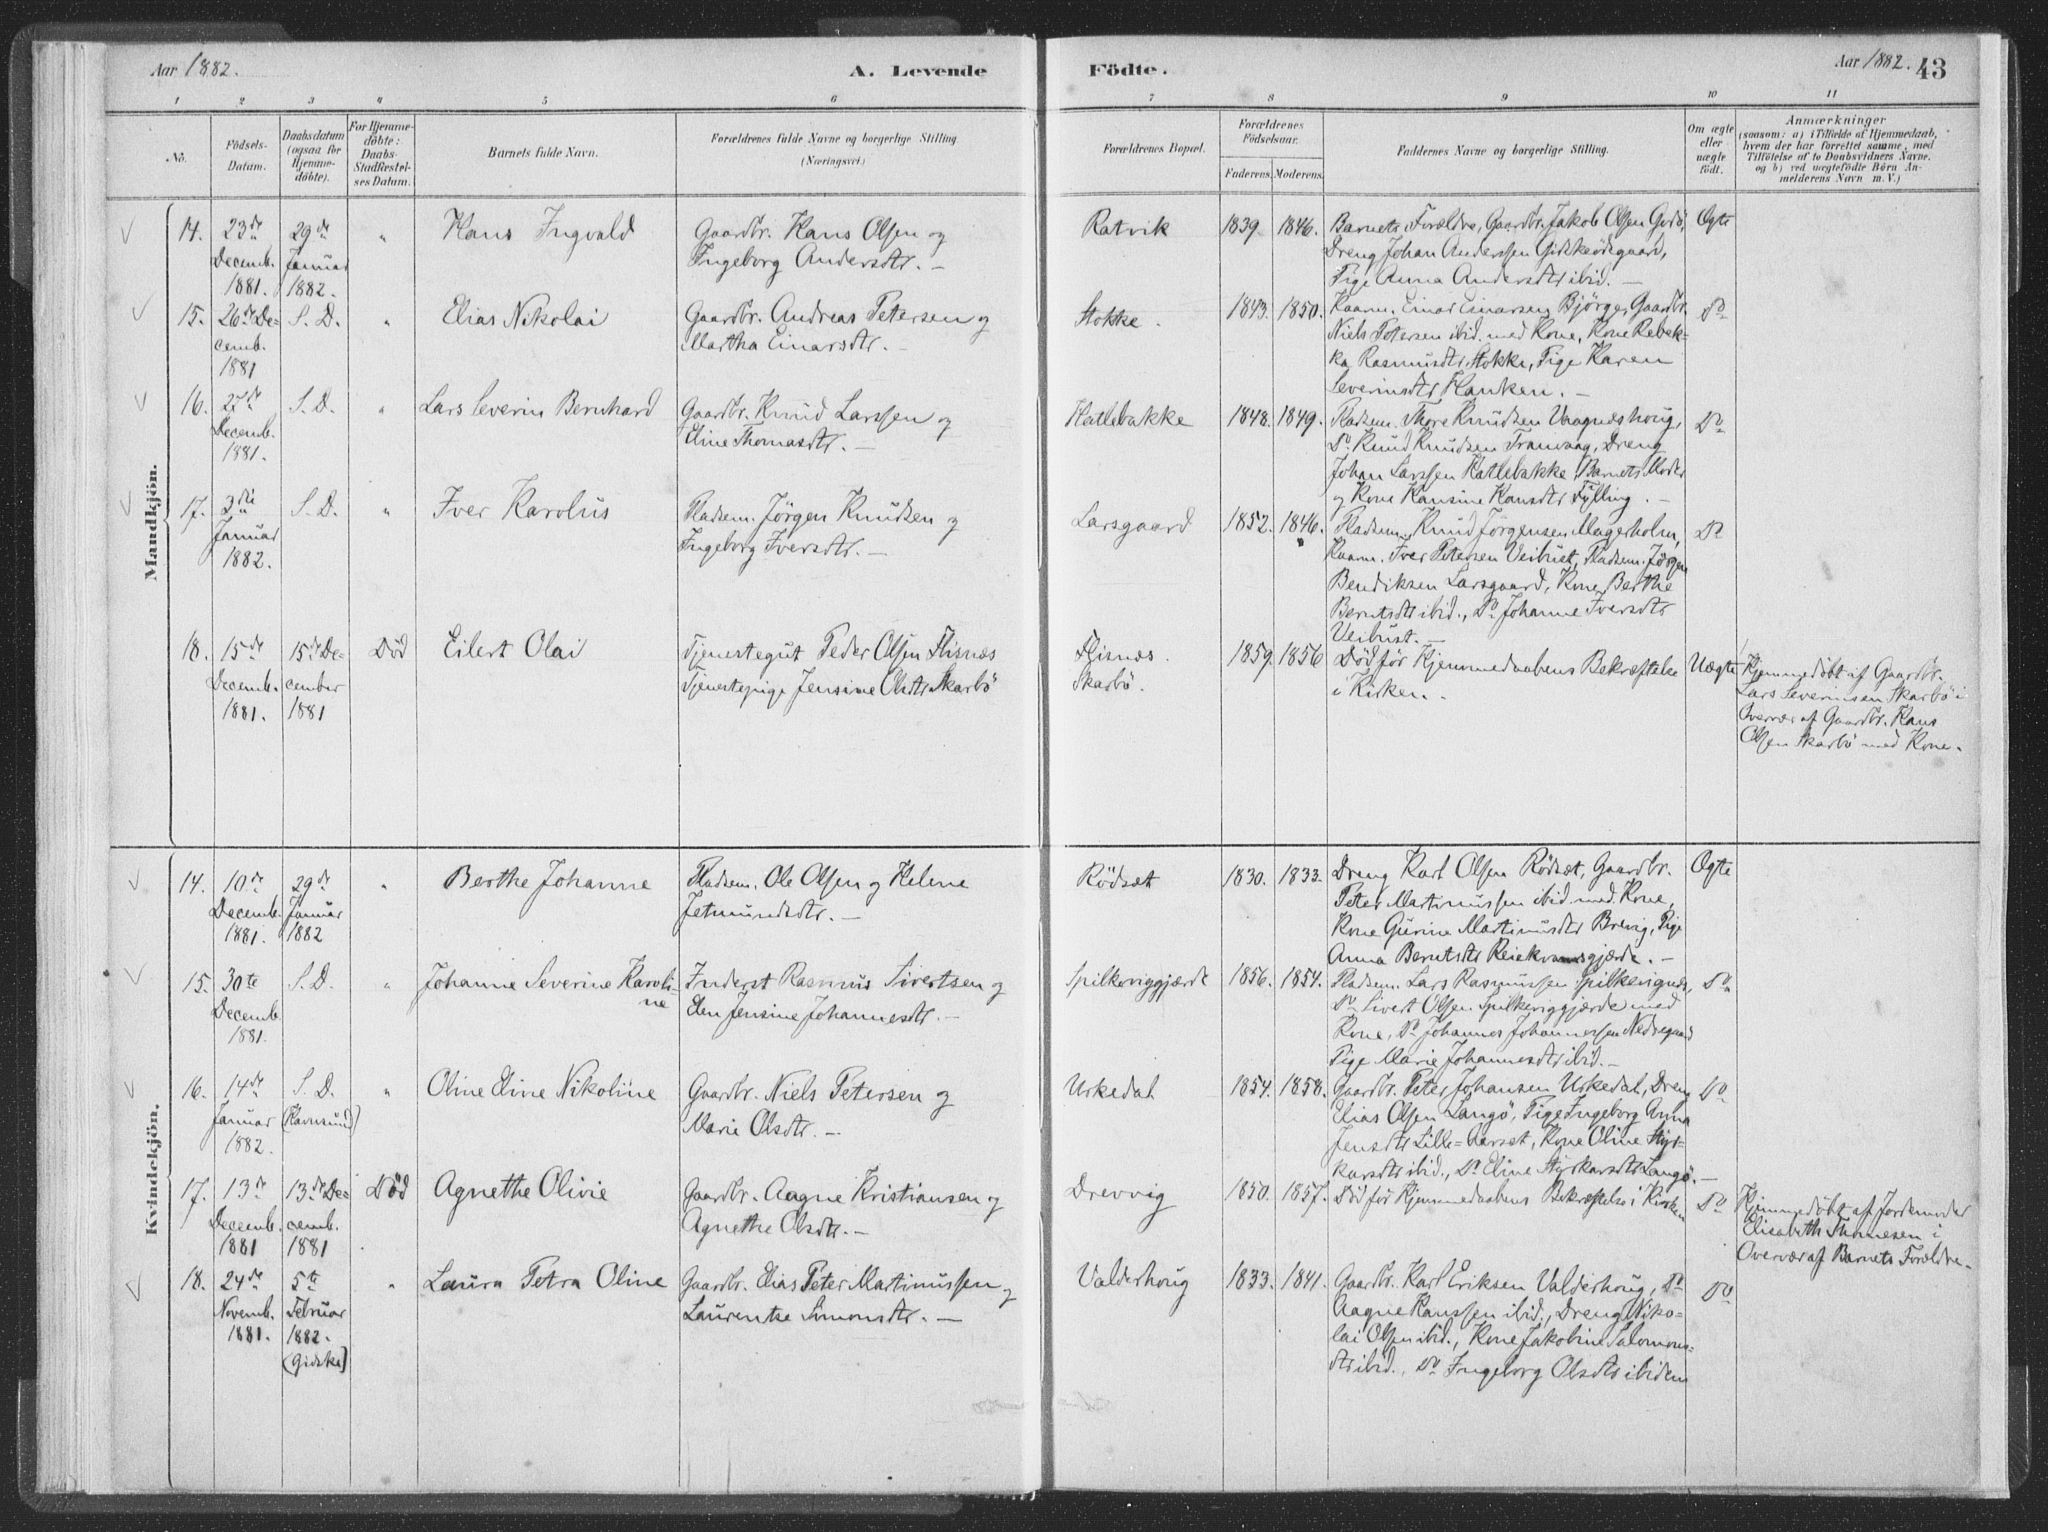 Aar 1882.
A. Levende
Födte.
Aar 1882.
43
1 2 3 4 5 6 7 8 9 10 11
No.
Födsels-
Datum.
Daabsdatum
(ogsaa for
Hjemme-
döbte).
For Hjemme-
döbte:
Daabs-
Stadfæstel-
ses Datum.
Barnets fulde Navn.
Forældrenes fulde Navne og borgerlige Stilling
(Næringsvei.)
Forældrenes Bopæl.
Forældrenes
Födselsaar.
Faderens. Moderens.
Faddernes Navne og borgerlige Stilling.
Om ægte
eller
uægte
födt.
Anmærkninger
(saasom: a) i Tilfælde af Hjemmedaab,
hvem der har forrettet samme, med
Tilföielse af to Daabsvidners Navne.
og b) ved uægtefödte Börn An-
melderens Navn m. V.)
Mandkjön.
14.
23de
Decemb.
1881.
29de
Januar
1882.
"
Hans Ingvald
Gaardbr. Hans Olsen og
Ingeborg Andersdtr. –
Ratvik
1839 1846.
Barnets Forældre, Gaardbr. Jakob Olsen Godö,
Dreng Johan Anderssen Gidskeödegaard,
Pige Anna Andersdtr ibid. –
Ægte
15.
26de De-
cemb.
1881
S. D.
"
Elias Nikolai
Gaardbr. Andreas Petersen og
Martha Einarsdtr. –
Stokke.
1843. 1850.
Kaarm. Einar Einarsen Bjørge, Gaardbr.
Niels Petersen ibid. med Kone, Kone Rebek-
ka Rasmusdtr Stokke, Pige Karen
Severinsdtr Hanken. –
Do
16.
27de
Decemb.
1881.
S. D.
"
Lars Severin Bernhard
Gaardbr. Knud Larssen og
Eline Thomasdtr. –
Hatlebakke
1848. 1849.
Pladsem. Thore Knudsen Vaagneshoug,
Do Knud Knudsen Tranvaag, Dreng
Johan Larssen Hatlebakke, Barnets Moder
og Kone Hansine Hansdtr Fylling. –
Do
17.
3die
Januar
1882.
S. D.
"
Iver Karolus
Pladsem. Jörgen Knudsen og
Ingeborg Iversdtr. –
Larsgaard
1852. 1846.
Pladsem. Knud Jørgensen Magerholm,
Kaarm. Iver Petersen Veibust, Pladsem. Jörgen
Bendiksen Larsgaard, Kone Berthe
Berntsdtr ibid., Do Johanne Iversdtr
Veibust. –
Do
18.
15de
Decemb.
1881.
15de De-
cember
1881
Död
Eilert Olai
Tjenestegut Peder Olsen Flisnæs
Tjenestepige Jensine Olsdtr Skarbö
Flisnæs.
Skarbö.
1859. 1856
Död för Hjemmedaabens Bekræftelse
i Kirken.
Uægte
Hjemmedöbt af Gaardbr.
Lars Severinsen Skarbö i
Overvær af Gaardbr. Hans
Olsen Skarbö med Kone.
Kvindekjön.
14.
10de
Decemb.
1881.
29de
Januar
1882
"
Berthe Johanne
Pladsem. Ole Olsen og Helene
Jetmundsdtr. –
Rödsæt
1830. 1833.
Dreng Karl Olsen Rödsæt, Gaardbr.
Peter Martinussen ibid. med Kone,
Kone Gurine Martinusdtr Brevig, Pige
Anna Berntsdtr Reiekvamsgjærde. –
Ægte
15.
30te
Decemb.
1881.
S. D.
"
Johanne Severine Karoli-
ne
Inderst Rasmus Sivertsen og
Elen Jensine Johannesdtr. –
Spilkeviggjærde
1856. 1854.
Pladsem. Lars Rasmussen Spilkevignæs,
Do Sivert Olsen Spilkeviggjærde med
Kone, Do Johannes Johannessen Nedregaard
Pige Marie Johannesdtr ibid. –
Do
16.
14de
Januar
1882.
S. D.
(Havnsund)
"
Oline Eline Nikoline
Gaardbr. Niels Petersen og
Marie Olsdtr. –
Urkedal
1854. 1858.
Gaardbr. Peter Johansen Urkedal, Dreng
Elias Olsen Langö, Pige Ingeborg Anna
Jensdtr Lille-Aarset, Kone Oline Styr-
karsdtr ibid., Do Eline Styrkarsdtr Langö. –
Do
17.
13de
Decemb.
1881
13de De-
cemb.
1881
Död
Agnethe Olivie
Gaardbr. Aagne Kristiansen og
Agnethe Olsdtr. –
Drevvig
1850. 1857.
Död för Hjemmedaabens Bekræftelse i Kirken
Do
Hjemmedöbt af Jordemoder
Elisabeth Thomesen i
Overvær af Barnets Forældre.
18.
24de
Novemb.
1881.
5te
Februar
1882.
(Gidske)
"
Laura Petra Oline
Gaardbr. Elias Peter Martinussen og
Laurentse Simonsdtr. –
Valderhoug
1833. 1841.
Gaardbr. Karl Eriksen Valderhoug, Do
Aagne Hanssen ibid., Dreng Niko-
lai Olsen ibid., Kone Jakobine Salomons-
dtr ibid., Do Ingeborg Olsdtr ibidem
Do